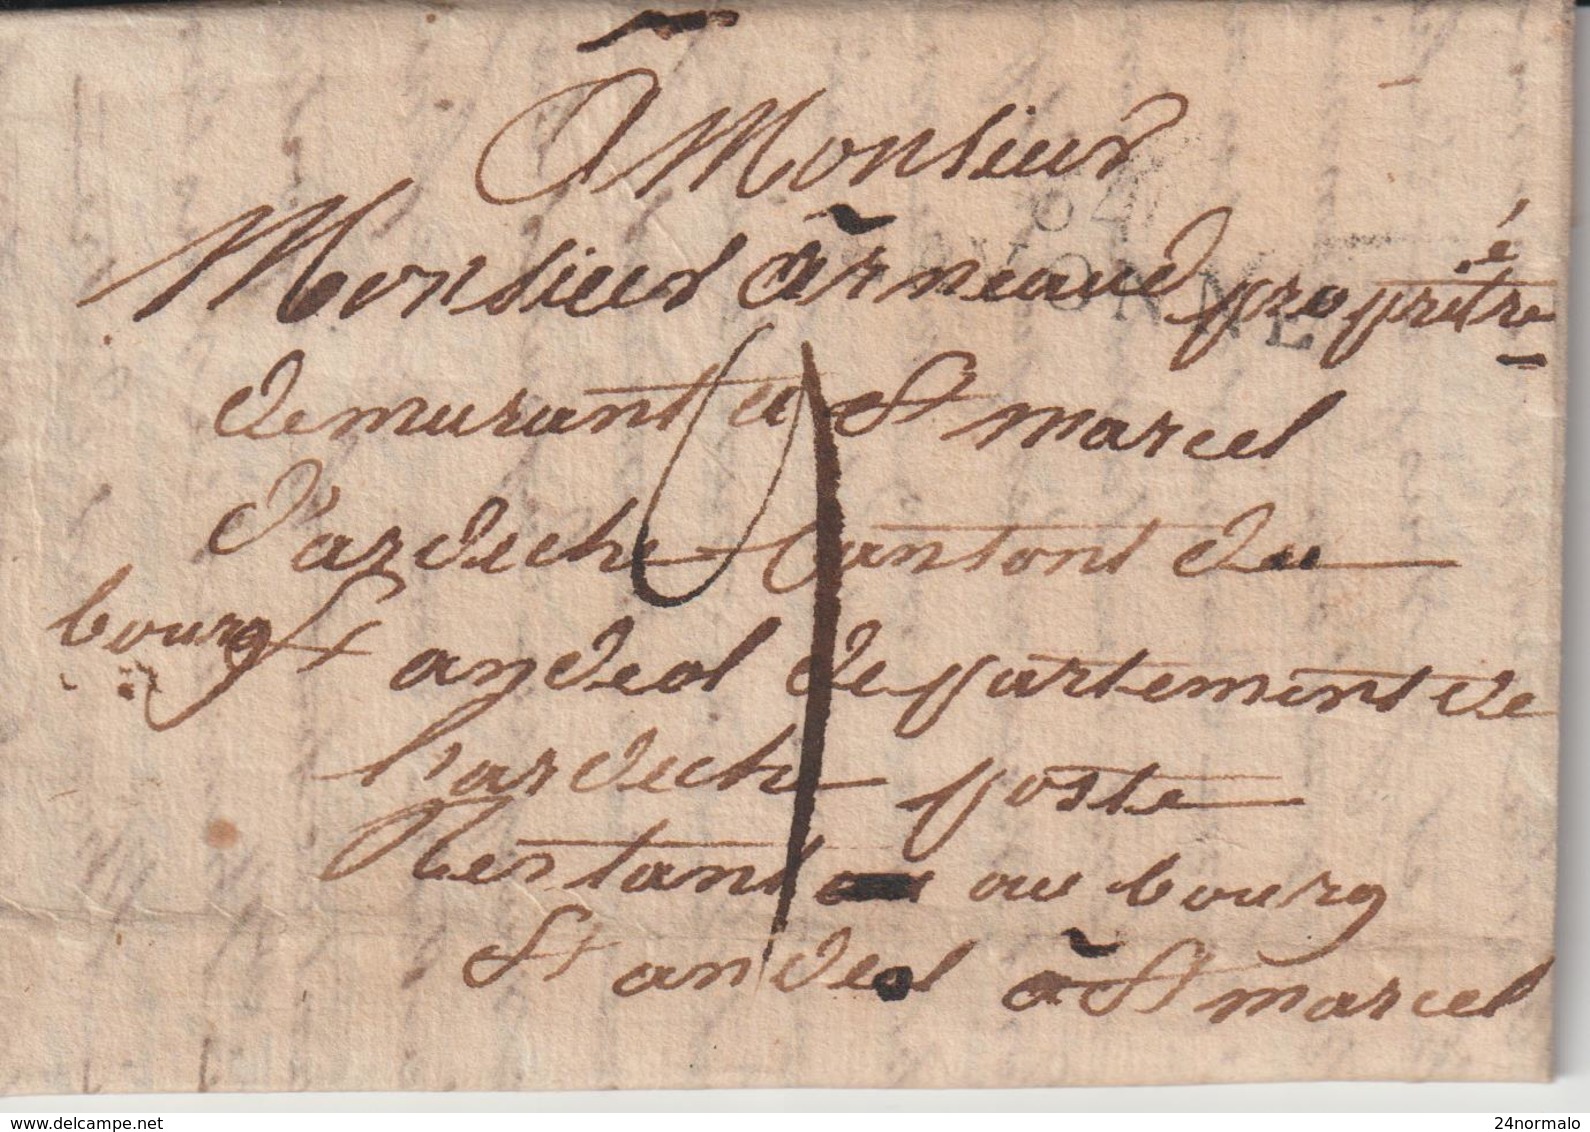 À Monsieur
64
BAYONNE
Monsieur arneaud propriétre
demurant a St marcel
d'ardeche Canton du
bourg St andeol departement de
l'ardeche poste
Restant au bourg
St andeol à St marcel
www.delcampe.net
24normalo